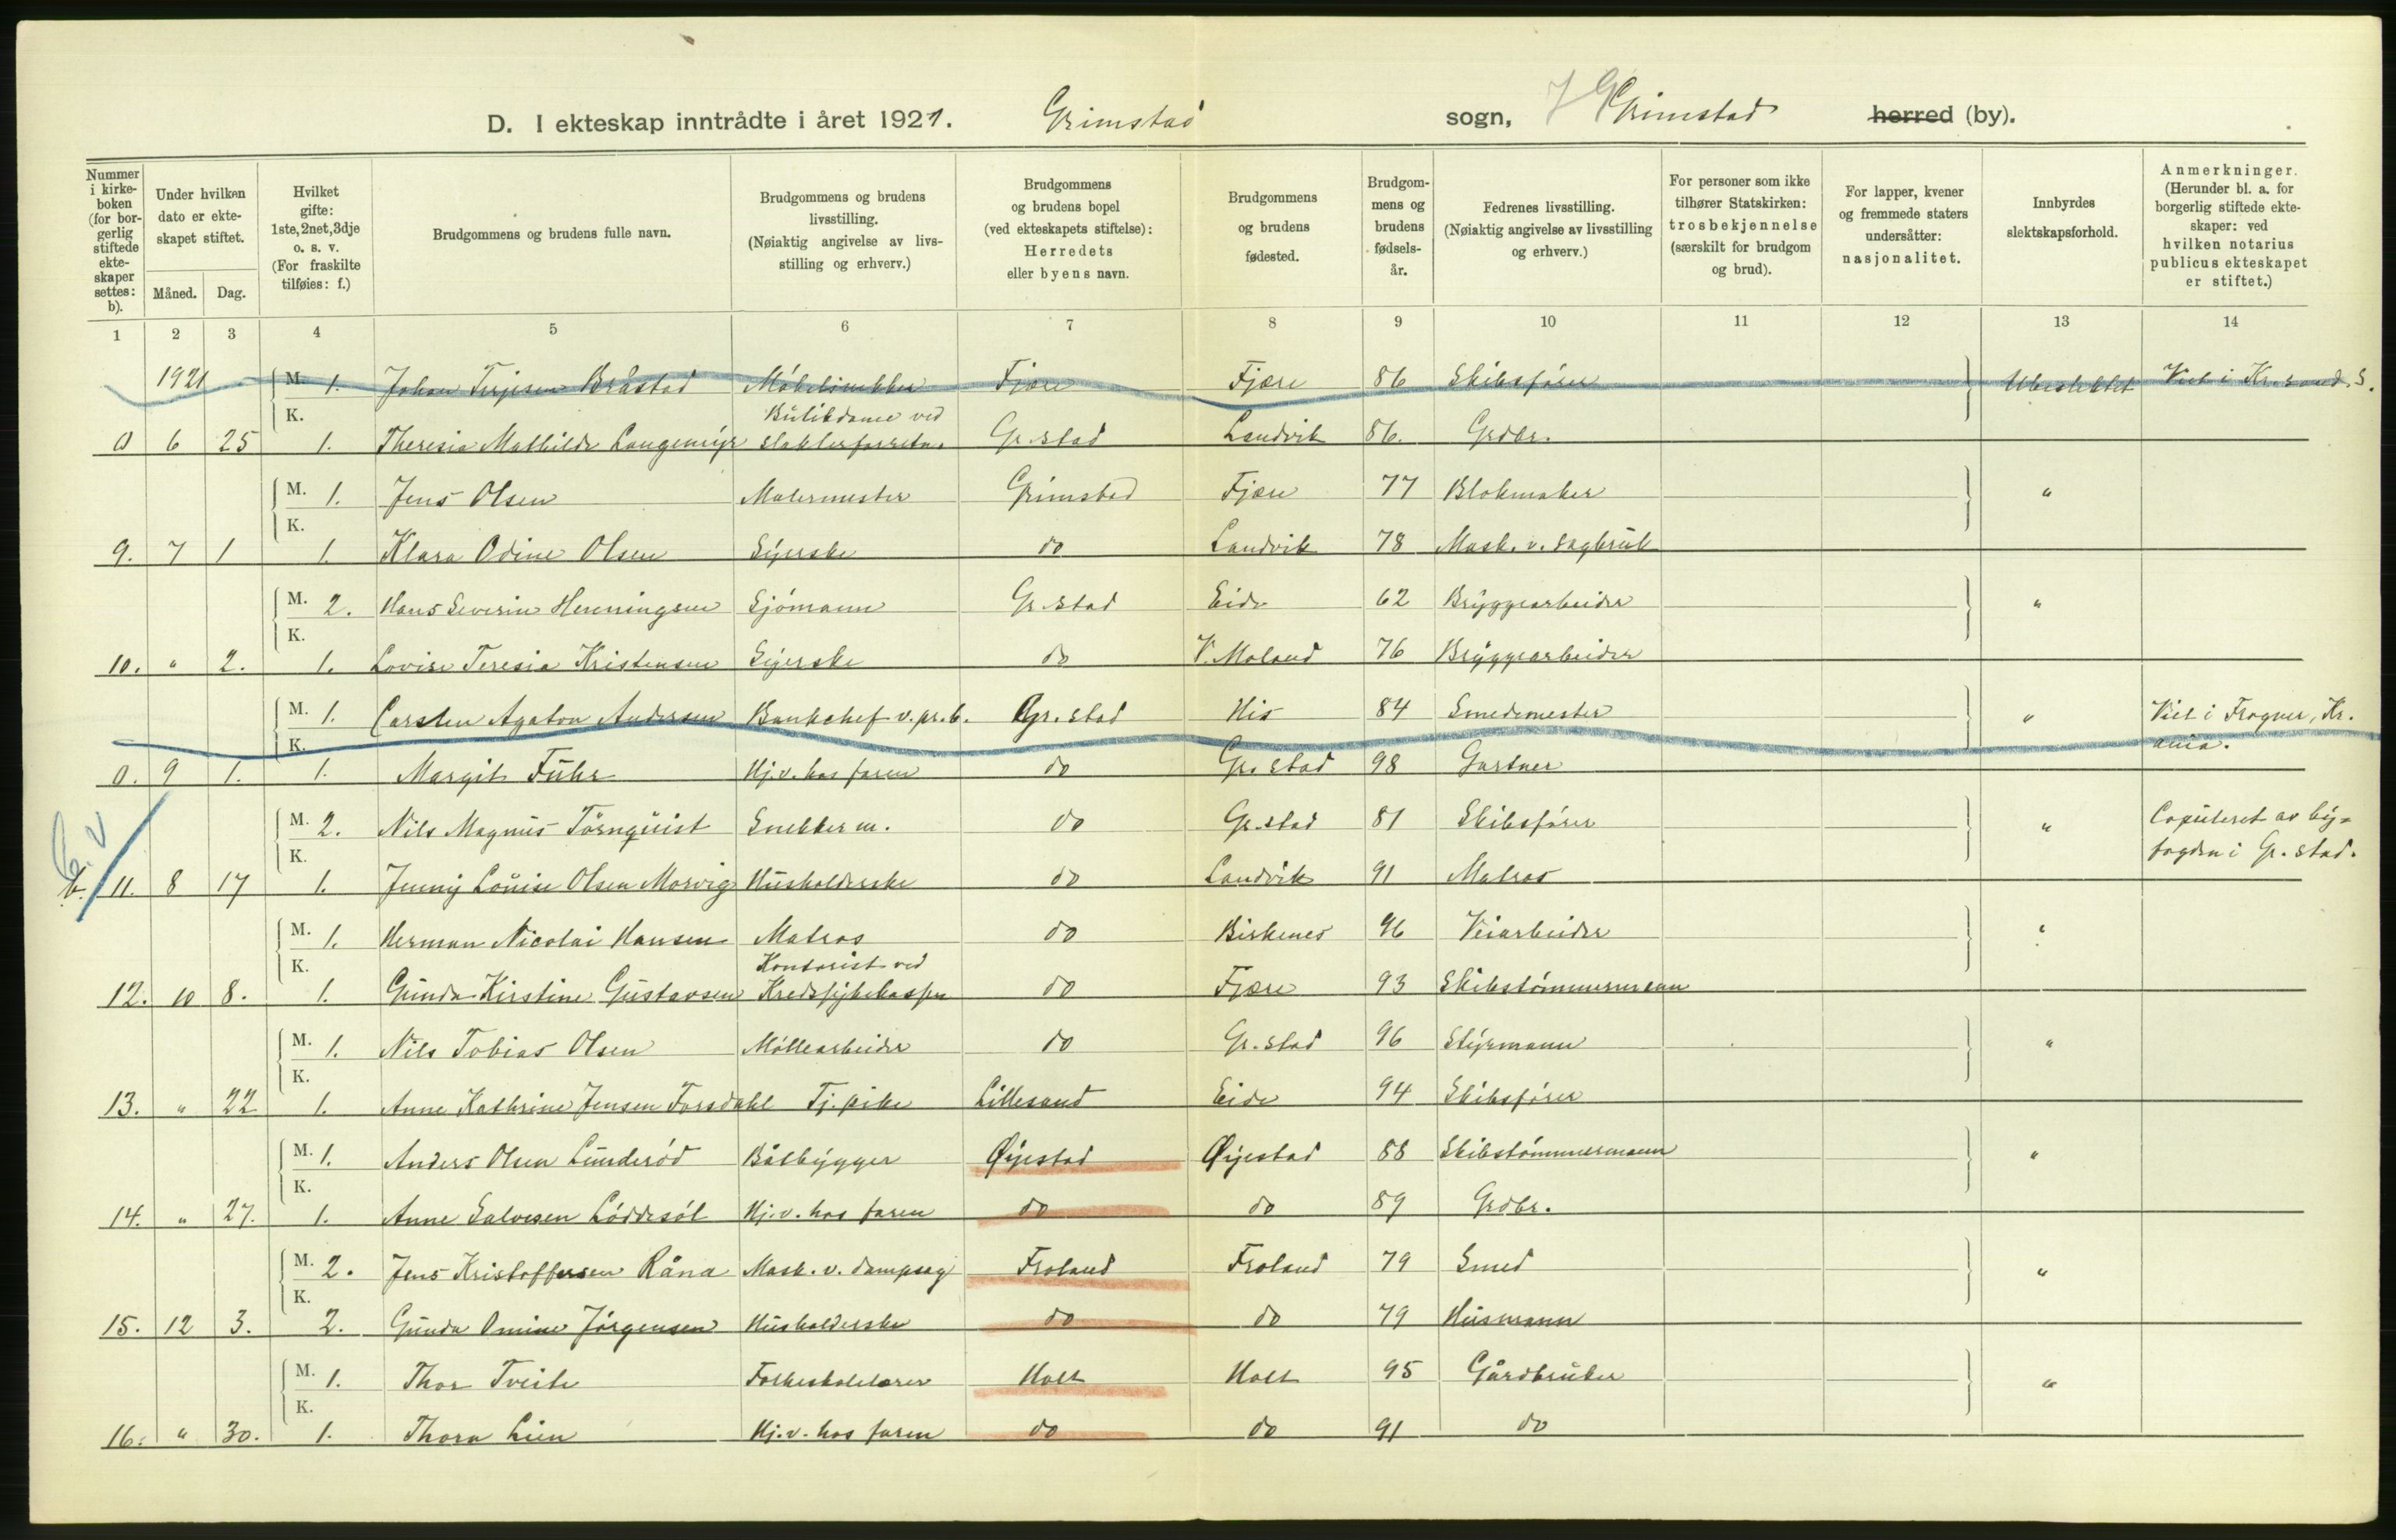 D. I ekteskap inntrådte i året 1921. Grimstad sogn, Grimstad herred (by).
Nummer i kirke- boken (for bor- gerlig stiftede ekte- skaper settes: b).
Under hvilken dato er ekte- skapet stiftet.
Måned. Dag.
Hvilket gifte: 1ste, 2net, 3dje o. s. v. (For fraskilte tilføies: f.)
Brudgommens og brudens fulle navn.
Brudgommens og brudens livsstilling. (Nøiaktig angivelse av livs- stilling og erhverv.)
Brudgommens og brudens bopel (ved ekteskapets stiftelse): Herredets eller byens navn.
Brudgommens og brudens fødested.
Brudgom- mens og brudens fødsels- år.
Fedrenes livsstilling. (Nøiaktig angivelse av livsstilling og erhverv.)
For personer som ikke tilhører Statskirken: trosbekjennelse (særskilt for brudgom og brud).
For lapper, kvener og fremmede staters undersåtter: nasjonalitet.
Innbyrdes slektskapsforhold.
Anmerkninger. (Herunder bl. a. for borgerlig stiftede ekte- skaper: ved hvilken notarius publicus ekteskapet er stiftet.)
1 2 3 4 5 6 7 8 9 10 11 12 13 14
1921 M. 1. Johan Terjesen Bråstad Möbelsnekker Fjære Fjære 86 Skibsfører Ubeslektet Viet i Kr.sand. S.
K. Butikdame ved
0 6 25 1. Theresia Mathilde Langemyr slakterforretn. Gr.stad Landvik 86. Grdbr.
M. 1. Jens Olsen Malermester Grimstad Fjære 77 Blokmaker "
K.
9. 7 1 1. Klara Odine Olsen Syerske do Landvik 78 Mask. v. sagbruk
M. 2. Hans Severin Henningsen Sjömann Gr.stad Eide 62 Bryggearbeider "
K.
10. " 2. 1. Lovise Teresia Kristensen Syerske do V. Moland 76 Bryggearbeider
M. 1. Carsten Agaton Andersen Bankchef v. pr. b. Gr.stad His 84 Smedemester " Viet i Frogner, Kr.
K. ania.
0. 9 1. 1. Margit Fuhr Hj. v. hos faren do Gr.stad 98 Gartner
M. 2. Nils Magnus Törnquist Snekker m. do Gr.stad 81 Skibsfører " Copuleret av by-
K. fogden i Gr.stad.
b. 11. 8 17 1. Jenny Louise Olsen Morvig Husholderske do Landvik 91 Matros
M. 1. Herman Nicolai Hansen Matros do Birkenes 96 Veiarbeider "
K. Kontorist ved
12. 10 8. 1. Gunda Kirstine Gustavsen Kredssykekassen do Fjære 93 Skibstömmermann
M. 1. Nils Tobias Olsen Möllearbeider do Gr.stad 96 Styrmann "
K.
13. " 22 1. Anne Kathrine Jensen Forsdahl Tj. pike Lillesand Eide 94 Skibsfører
M. 1. Anders Olsen Lunderöd Båtbygger Øiestad Øiestad 88 Skibstömmermann "
K.
14. " 27. 1. Anne Salvesen Löddesöl Hj. v. hos faren do do 89 Grdbr.
M. 2. Jens Kristoffersen Råna Mask. v. dampsag Froland Froland 79 Smed "
K.
15. 12 3. 2. Gunda Omine Jörgensen Husholderske do do 79 Husmann
M. 1. Thor Tveite Folkeskolelærer Holt Holt 95 Gårdbruker "
K.
16. " 30. 1. Thora Lien Hj. v. hos faren do do 91 do